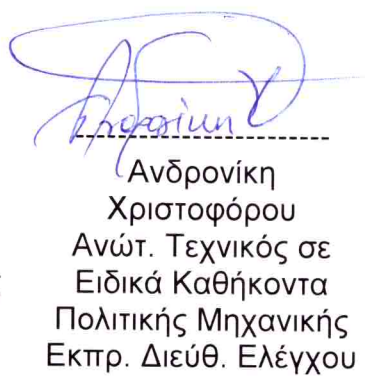 Ανδρονίκη
Χριστοφόρου
Ανώτ. Τεχνικός σε
Ειδικά Καθήκοντα
Πολιτικής Μηχανικής
Εκπρ. Διεύθ. Ελέγχου